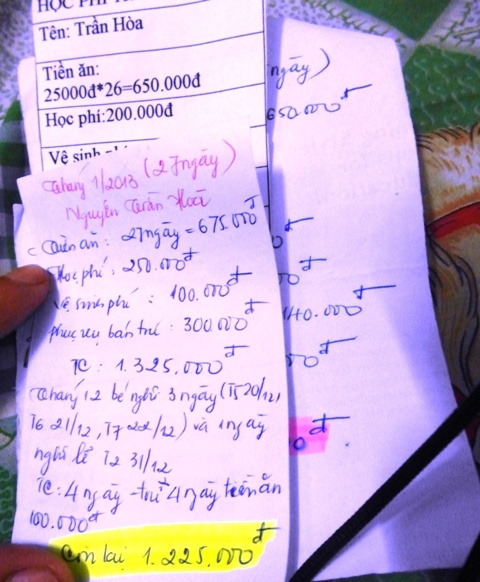 HỌC PHÍ
Tên: Trần Hòa
Tiền ăn:
25000đ*26=650.000đ
Học phí:200.000đ
Vệ sinh
ngày)
650.000đ
140.000đ
đ
Tháng 1/2013 (27ngày)
Nguyễn Trần Hoà
Tiền ăn: 27ngày = 675.000đ
Học phí: 250.000đ
Vệ sinh phí: 100.000đ
phục vụ bán trú: 300.000đ
TC: 1.325.000đ
Tháng 12 bé nghỉ 3 ngày (T5 20/12,
T6 21/12, T7 22/12) và 1 ngày
nghỉ lễ T2 31/12
TC: 4 ngày - trừ 4 ngày tiền ăn
100.000đ
Còn lại 1.225.000đ